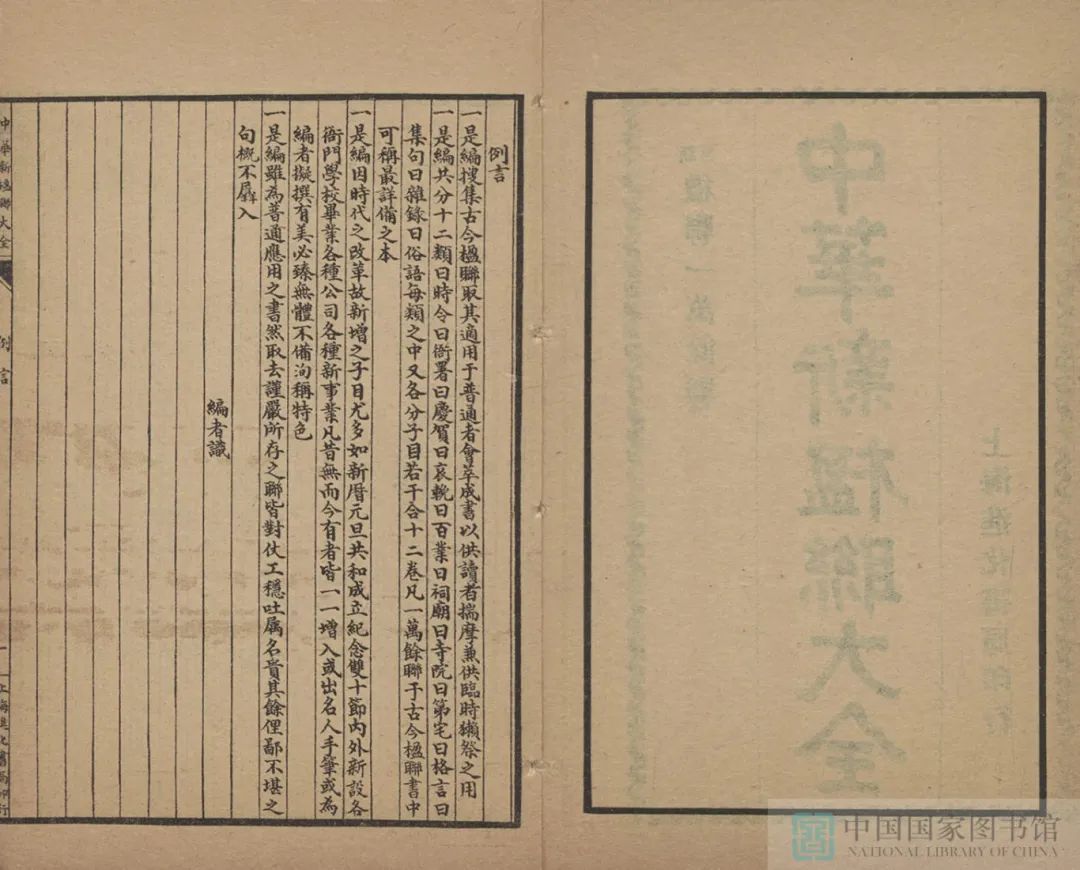 中華新楹聯大全
例言
一是編搜集古今楹聯取其適用于普通者會萃成書以供讀者揣摩兼供臨時獺祭之用
一是編共分十二類曰時令曰衙署曰慶賀曰哀輓曰百業曰祠廟曰寺院曰第宅曰格言曰
集句曰雜錄曰俗語每類之中又各分子目若干合十二卷凡一萬餘聯于古今楹聯書中
可稱最詳備之本
一是編因時代之改革故新增之子目尤多如新曆元旦共和成立紀念雙十節內外新設各
衙門學校畢業各種公司各種新事業凡昔無而今有者皆一一增入或出名人手筆或為
編者擬撰有美必臻無體不備洵稱特色
一是編雖為普通應用之書然取去謹嚴所存之聯皆對仗工穩吐屬名貴其餘俚鄙不堪之
句概不羼入
編者識
中華新楹聯大全
例言
一
上海進化書局印行
中国国家图书馆
NATIONAL LIBRARY OF CHINA